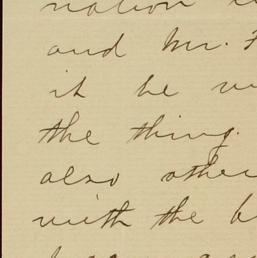 nation
and Mr.
it be
the thing.
also other
with the